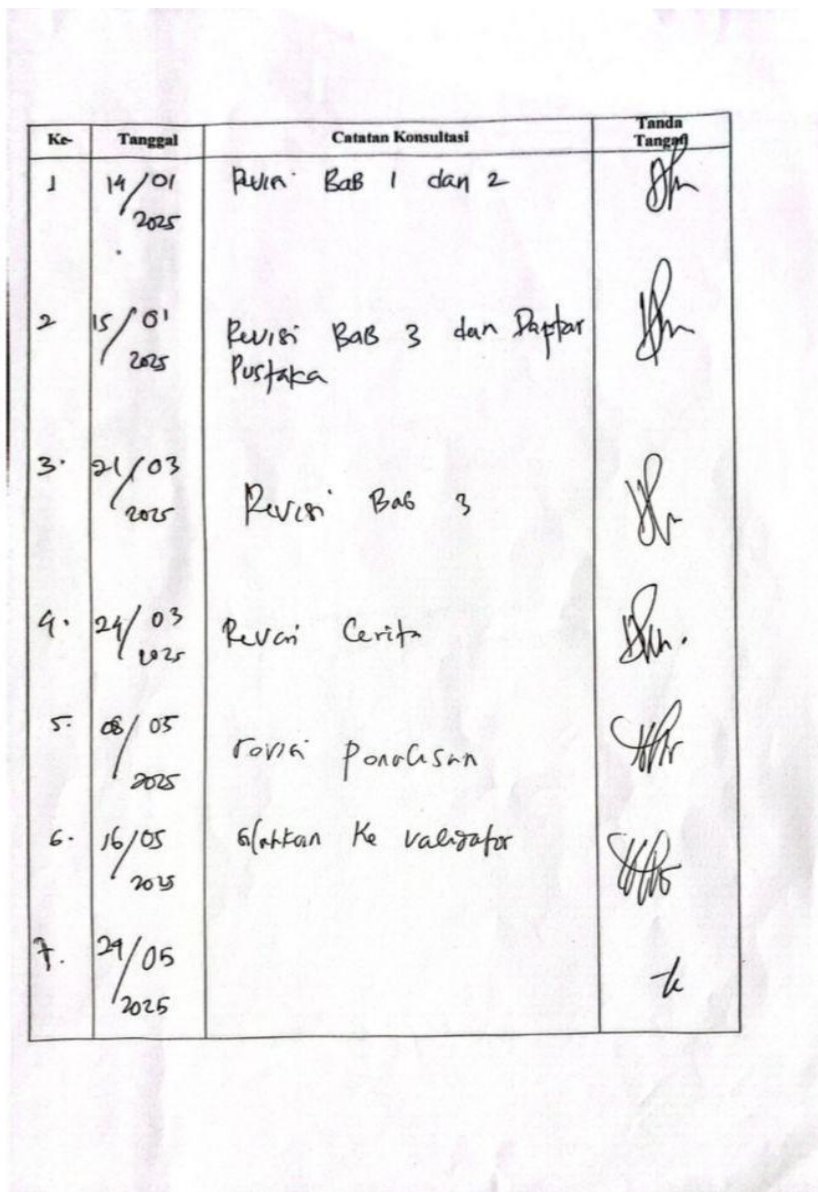 Ke- Tanggal Catatan Konsultasi Tanda Tangan
1 14/01 2025 Revisi BaB 1 dan 2
2 15/01 2025 Revisi BaB 3 dan Daptar
Pustaka
3. 21/03 2025 Revisi Bab 3
4. 24/03 2025 Revisi Cerita
5. 08/05 2025 revisi
6. 16/05 2025 silahkan Ke validator
7. 29/05 2025